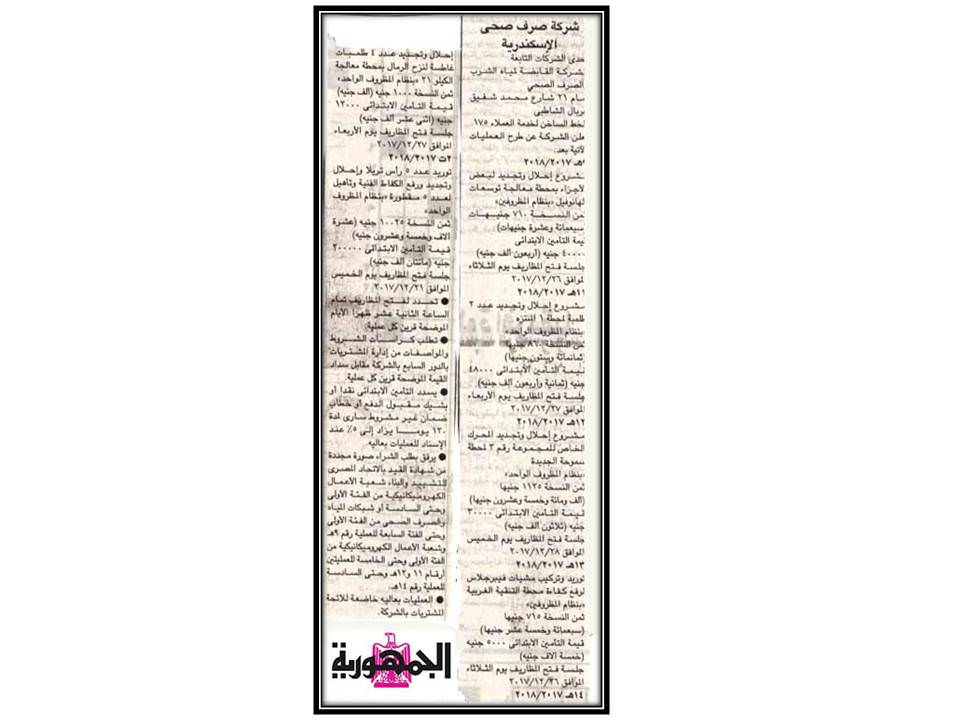 شركة صرف صحى
الإسكندرية
حدى الشركات التابعة
شركة القابضة لمياه الشرب
الصرف الصحي
سام ٢١ شارع محمد شفيق
بريال الشاطبى
لخط الساخن لخدمة العملاء ١٧٥
طن الشركة عن طرح العمليات
لآتية بعد:
٩هـ ٢٠١٨/٢٠١٧
مشروع إحلال وتجديد لبعض
لأجزاء بمحطة معالجة توسعات
لهانوفيل «بنظام المظروفين»
من النسخة ٧١٠ جنيهات
(سبعمائة وعشرة جنيهات)
يمة التأمين الابتدائى
٤٠٠٠٠ جنيه (أربعون ألف جنيه)
جلسة فتح المظاريف يوم الثلاثاء
الموافق ٢٠١٧/١٢/٢٦
١١هـ ٢٠١٨/٢٠١٧
مشروع إحلال وتجديد عدد ٢
طلمبة لمحطة ١ المنتزه
«بنظام المظروف الواحد»
ثمن النسخة ٨٧٠ جنيها
(ثمانمائة وستون جنيها)
قيمة التأمين الابتدائى ٤٨٠٠٠
جنيه (ثمانية وأربعون ألف جنيه)
جلسة فتح المظاريف يوم الأربعاء
الموافق ٢٠١٧/١٢/٢٧
١٢هـ ٢٠١٨/٢٠١٧
مشروع إحلال وتجديد المحرك
الخاص للمجموعة رقم ٣ لمحطة
سموحة الجديدة
«بنظام المظروف الواحد»
ثمن النسخة ١١٢٥ جنيها
(ألف ومائة وخمسة وعشرون جنيها)
قيمة التأمين الابتدائى ٣٠٠٠٠
جنيه (ثلاثون ألف جنيه)
جلسة فتح المظاريف يوم الخميس
الموافق ٢٠١٧/١٢/٢٨
١٣هـ ٢٠١٨/٢٠١٧
توريد وتركيب مشيات فيبرجلاس
لرفع كفاءة محطة التنقية الغربية
«بنظام المظروفين»
ثمن النسخة ٧١٥ جنيها
(سبعمائة وخمسة عشر جنيها)
قيمة التأمين الابتدائى ٥٠٠٠ جنيه
(خمسة آلاف جنيه)
جلسة فتح المظاريف يوم الثلاثاء
الموافق ٢٠١٧/١٢/٢٦
١٤هـ ٢٠١٨/٢٠١٧
إحلال وتجديد عدد ٤ طلمبات
غاطسة لنزح الرمال بمحطة معالجة
الكيلو ٢١ «بنظام المظروف الواحد»
ثمن النسخة ١٠٠٠ جنيه (ألف جنيه)
قيمة التأمين الابتدائى ١٢٠٠٠
جنيه (اثنى عشر ألف جنيه)
جلسة فتح المظاريف يوم الأربعاء
الموافق ٢٠١٧/١٢/٢٧
٢ت ٢٠١٨/٢٠١٧
توريد عدد ٥ رأس تريلا وإحلال
وتجديد ورفع الكفاءة الفنية وتأهيل
لعدد ٥ مقطورة «بنظام المظروف
الواحد»
ثمن النسخة ١٠٠٢٥ جنيه (عشرة
آلاف وخمسة وعشرون جنيه)
قيمة التأمين الابتدائى ٢٠٠٠٠٠
جنيه (مائتان ألف جنيه)
جلسة فتح المظاريف يوم الخميس
الموافق ٢٠١٧/١٢/٢١
● تحدد لفتح المظاريف تمام
الساعة الثانية عشر ظهرا الأيام
الموضحة قرين كل عملية.
● تطلب كراسات الشروط
والمواصفات من إدارة المشتريات
بالدور السابع بالشركة مقابل سداد
القيمة الموضحة قرين كل عملية.
● يسدد التأمين الابتدائى نقدا أو
بشيك مقبول الدفع أو خطاب
ضمان غير مشروط سارى لمدة
١٣٠ يوما يزاد إلى ٥٪ عند
الإسناد للعمليات بعاليه.
● يرفق بطلب الشراء صورة مجددة
من شهادة القيد بالاتحاد المصرى
للتشييد والبناء شعبة الأعمال
الكهروميكانيكية من الفئة الأولى
وحتى السادسة أو شبكات المياه
والصرف الصحى من الفئة الأولى
وحتى الفئة السابعة للعملية رقم ٩هـ
وشعبة الأعمال الكهروميكانيكية من
الفئة الأولى وحتى الخامسة للعمليتين
أرقام ١١ و١٢هـ وحتى السادسة
للعملية رقم ١٤هـ.
● العمليات بعاليه خاضعة للائحة
المشتريات بالشركة.
الجمهورية